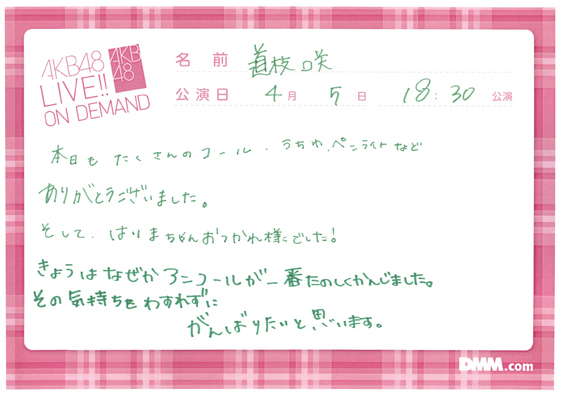 AKB48
LIVE!!
ON DEMAND
AKB
48
名前 道枝 咲
公演日 4月 5日 18:30 公演
本日も たくさんのコール、うちわ、ペンライトなど
ありがとうございました。
そして、はりまちゃんおつかれ様でした!
きょうはなぜかアンコールが一番たのしくかんじました。
その気持ちをわすれずに
がんばりたいと思います。
DMM.com